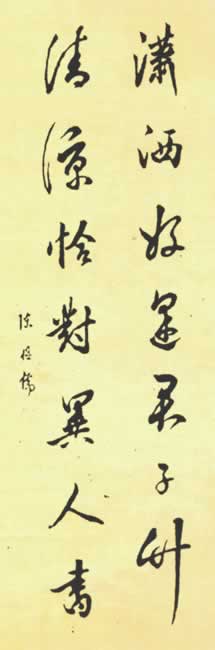 瀟洒好君子竹
清涼恰對異人書
陳